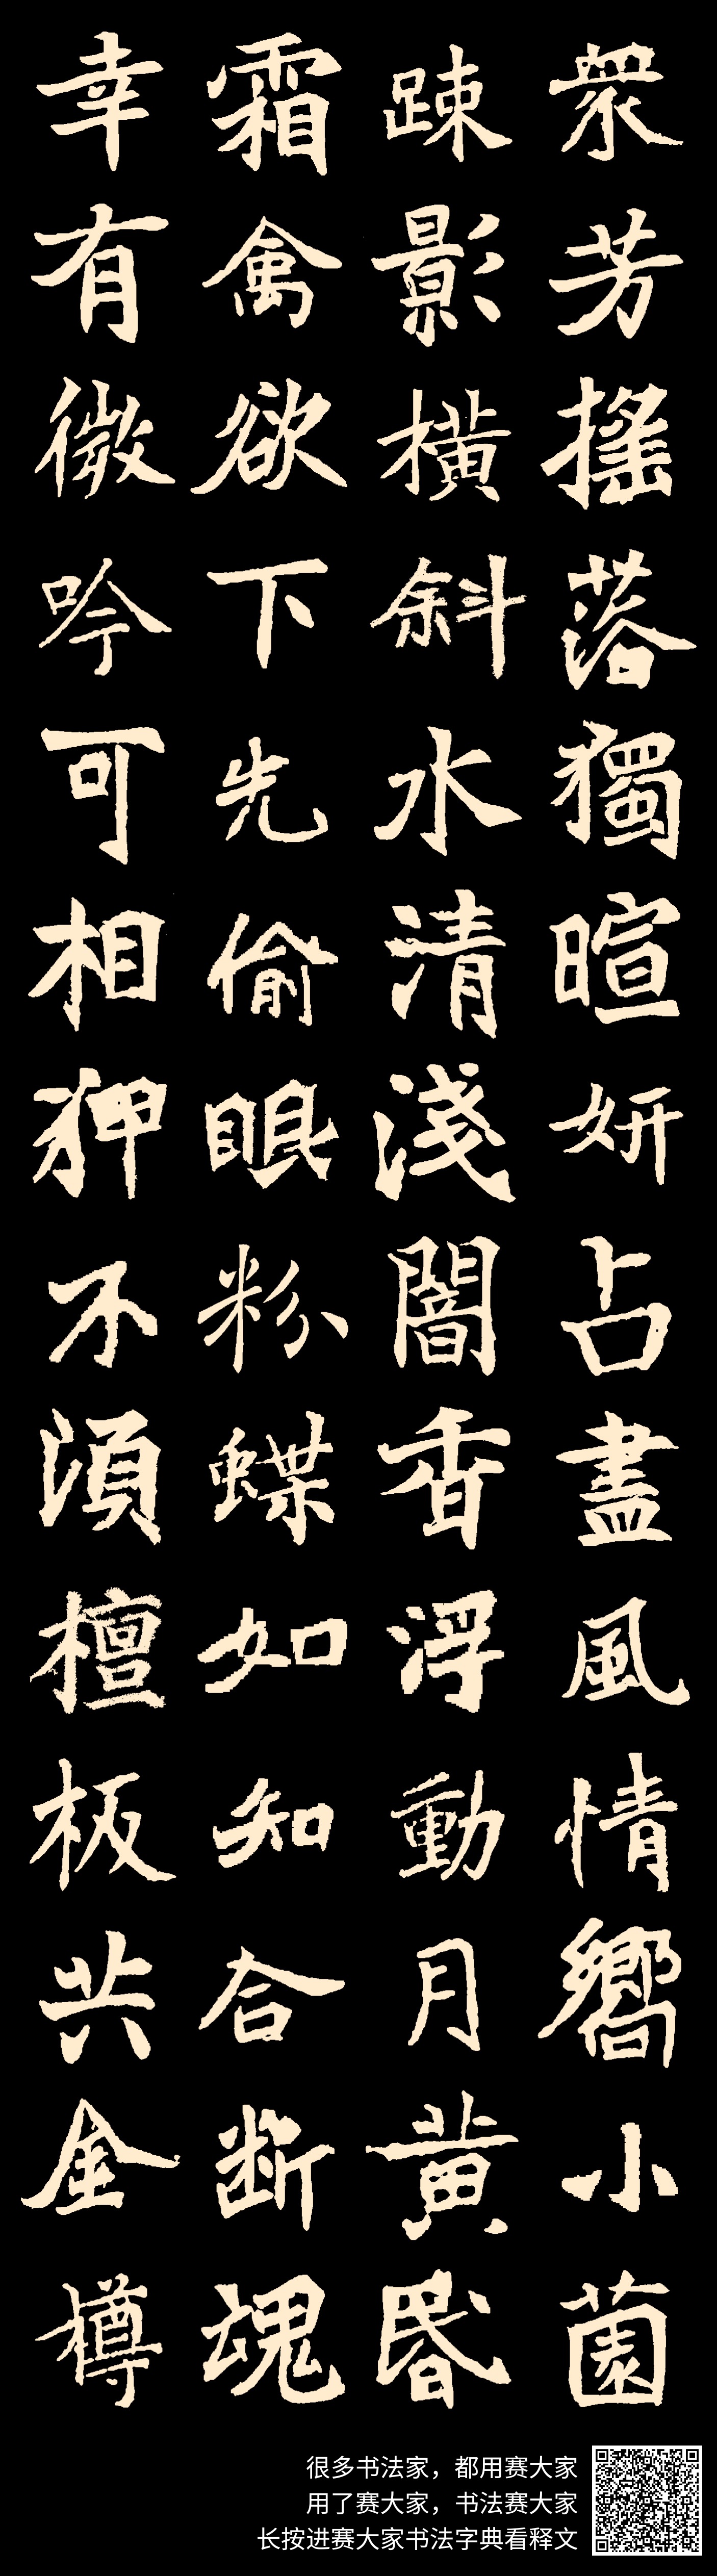 衆芳搖落獨暄妍占盡風情嚮小薗
踈影橫斜水清淺闇香浮動月黄昬
霜禽欲下先偷眼粉蝶如知合断魂
幸有微吟可相狎不湏檀板共金樽
很多书法家，都用赛大家
用了赛大家，书法赛大家
长按进赛大家书法字典看释文